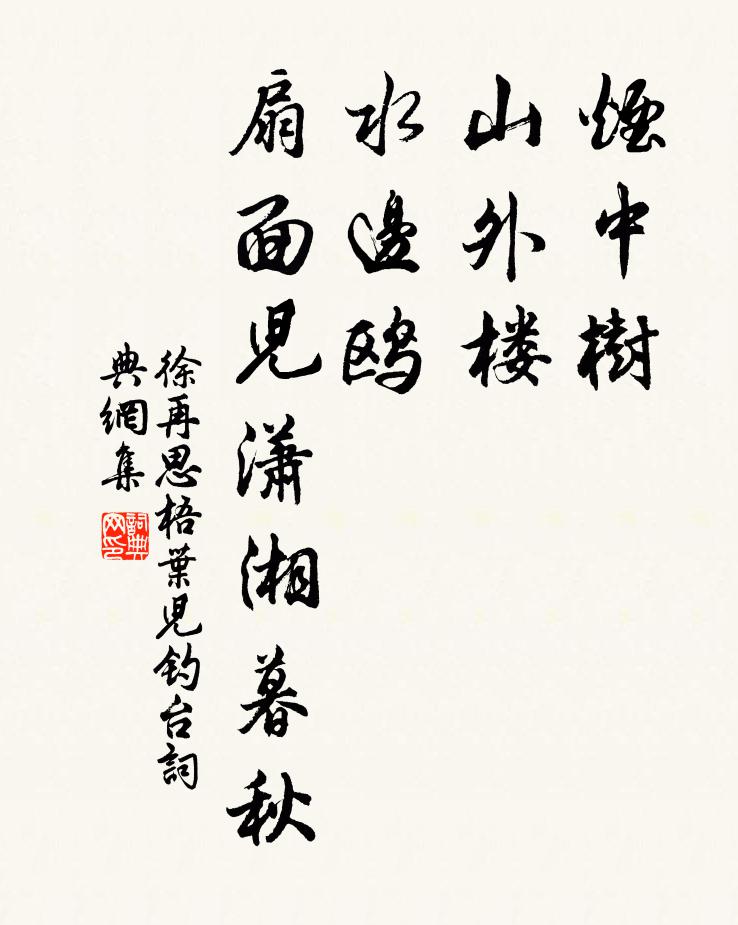 煙中樹
山外楼
水邊鸥
扇面兒瀟湘暮秋
徐再思梧葉兒釣台詞
典網集
詞典
网印